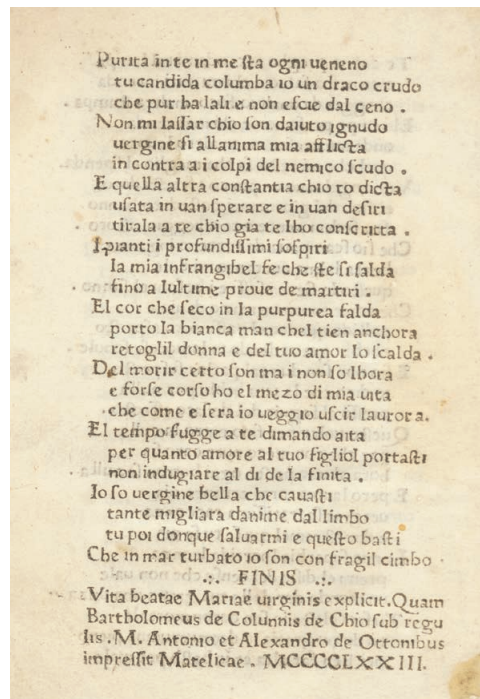 Purita in te in me sta ogni ueneno
tu candida columba io un draco crudo
che pur ha lali e non escie dal ceno .
Non mi lassar chio son daiuto ignudo
uergine si allanima mia afflicta
in contra a i colpi del nemico scudo .
E quella altra constantia chio to dicta
usata in uan sperare e in uan desiri
tirala a te chio gia te lho conscritta .
I pianti i profundissimi sospiri
la mia infrangibel fe che ste si salda
fino a lultime proue de martiri .
El cor che seco in la purpurea falda
porto la bianca man chel tien anchora
retoglil donna e del tuo amor lo scalda .
Del morir certo son ma i non so lhora
e forse corso ho el mezo di mia uita
che come e sera io ueggio uscir laurora .
El tempo fugge a te dimando aita
per quanto amore al tuo figliol portasti
non indugiare al di de la finita .
Io so uergine bella che cauasti
tante migliara danime dal limbo
tu poi donque saluarmi e questo basti
Che in mar turbato io son con fragil cimbo .
.:. FINIS .:.
Vita beatae Mariae uirginis explicit . Quam
Bartholomeus de Columnis de Chio sub regu
lis . M . Antonio et Alexandro de Ottonibus
impressit Matelicae . MCCCCLXXIII .